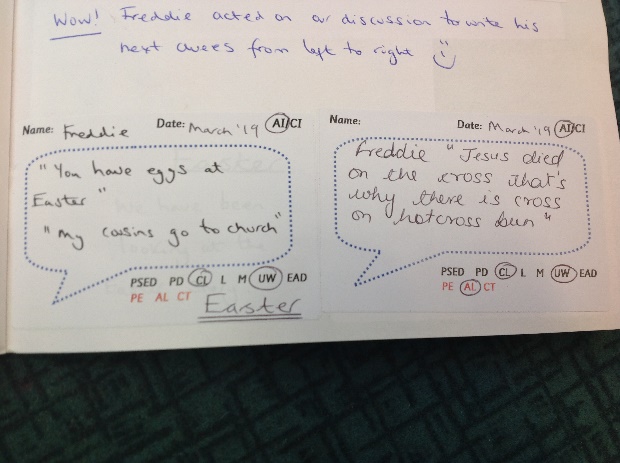 Wow! Freddie acted on our discussion to write his
next words from left to right
Name: Freddie Date: March '19 AI/CI
"You have eggs at
Easter"
"my cousins go to church"
PSED PD CL L M UW EAD
PE AL CT
Easter
Name: Date: March '19 AI/CI
Freddie "Jesus died
on the cross that's
why there is cross
on hotcross bun"
PSED PD CL L M UW EAD
PE AL CT